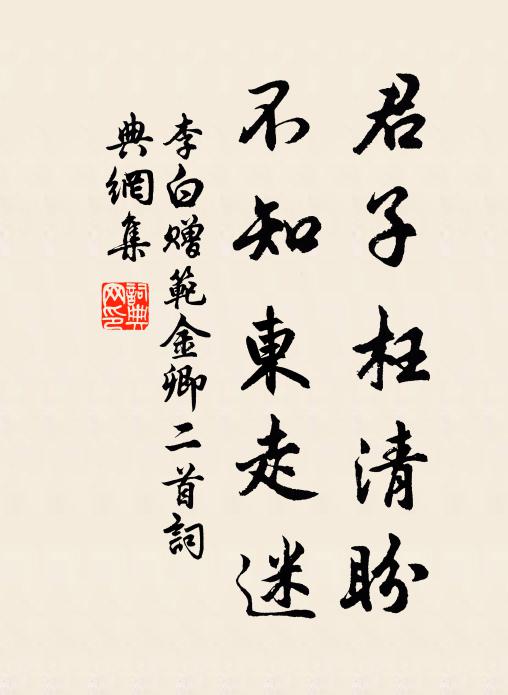 君子枉清盼
不知東走迷
李白赠範金卿二首詞
典網集
詞典网印